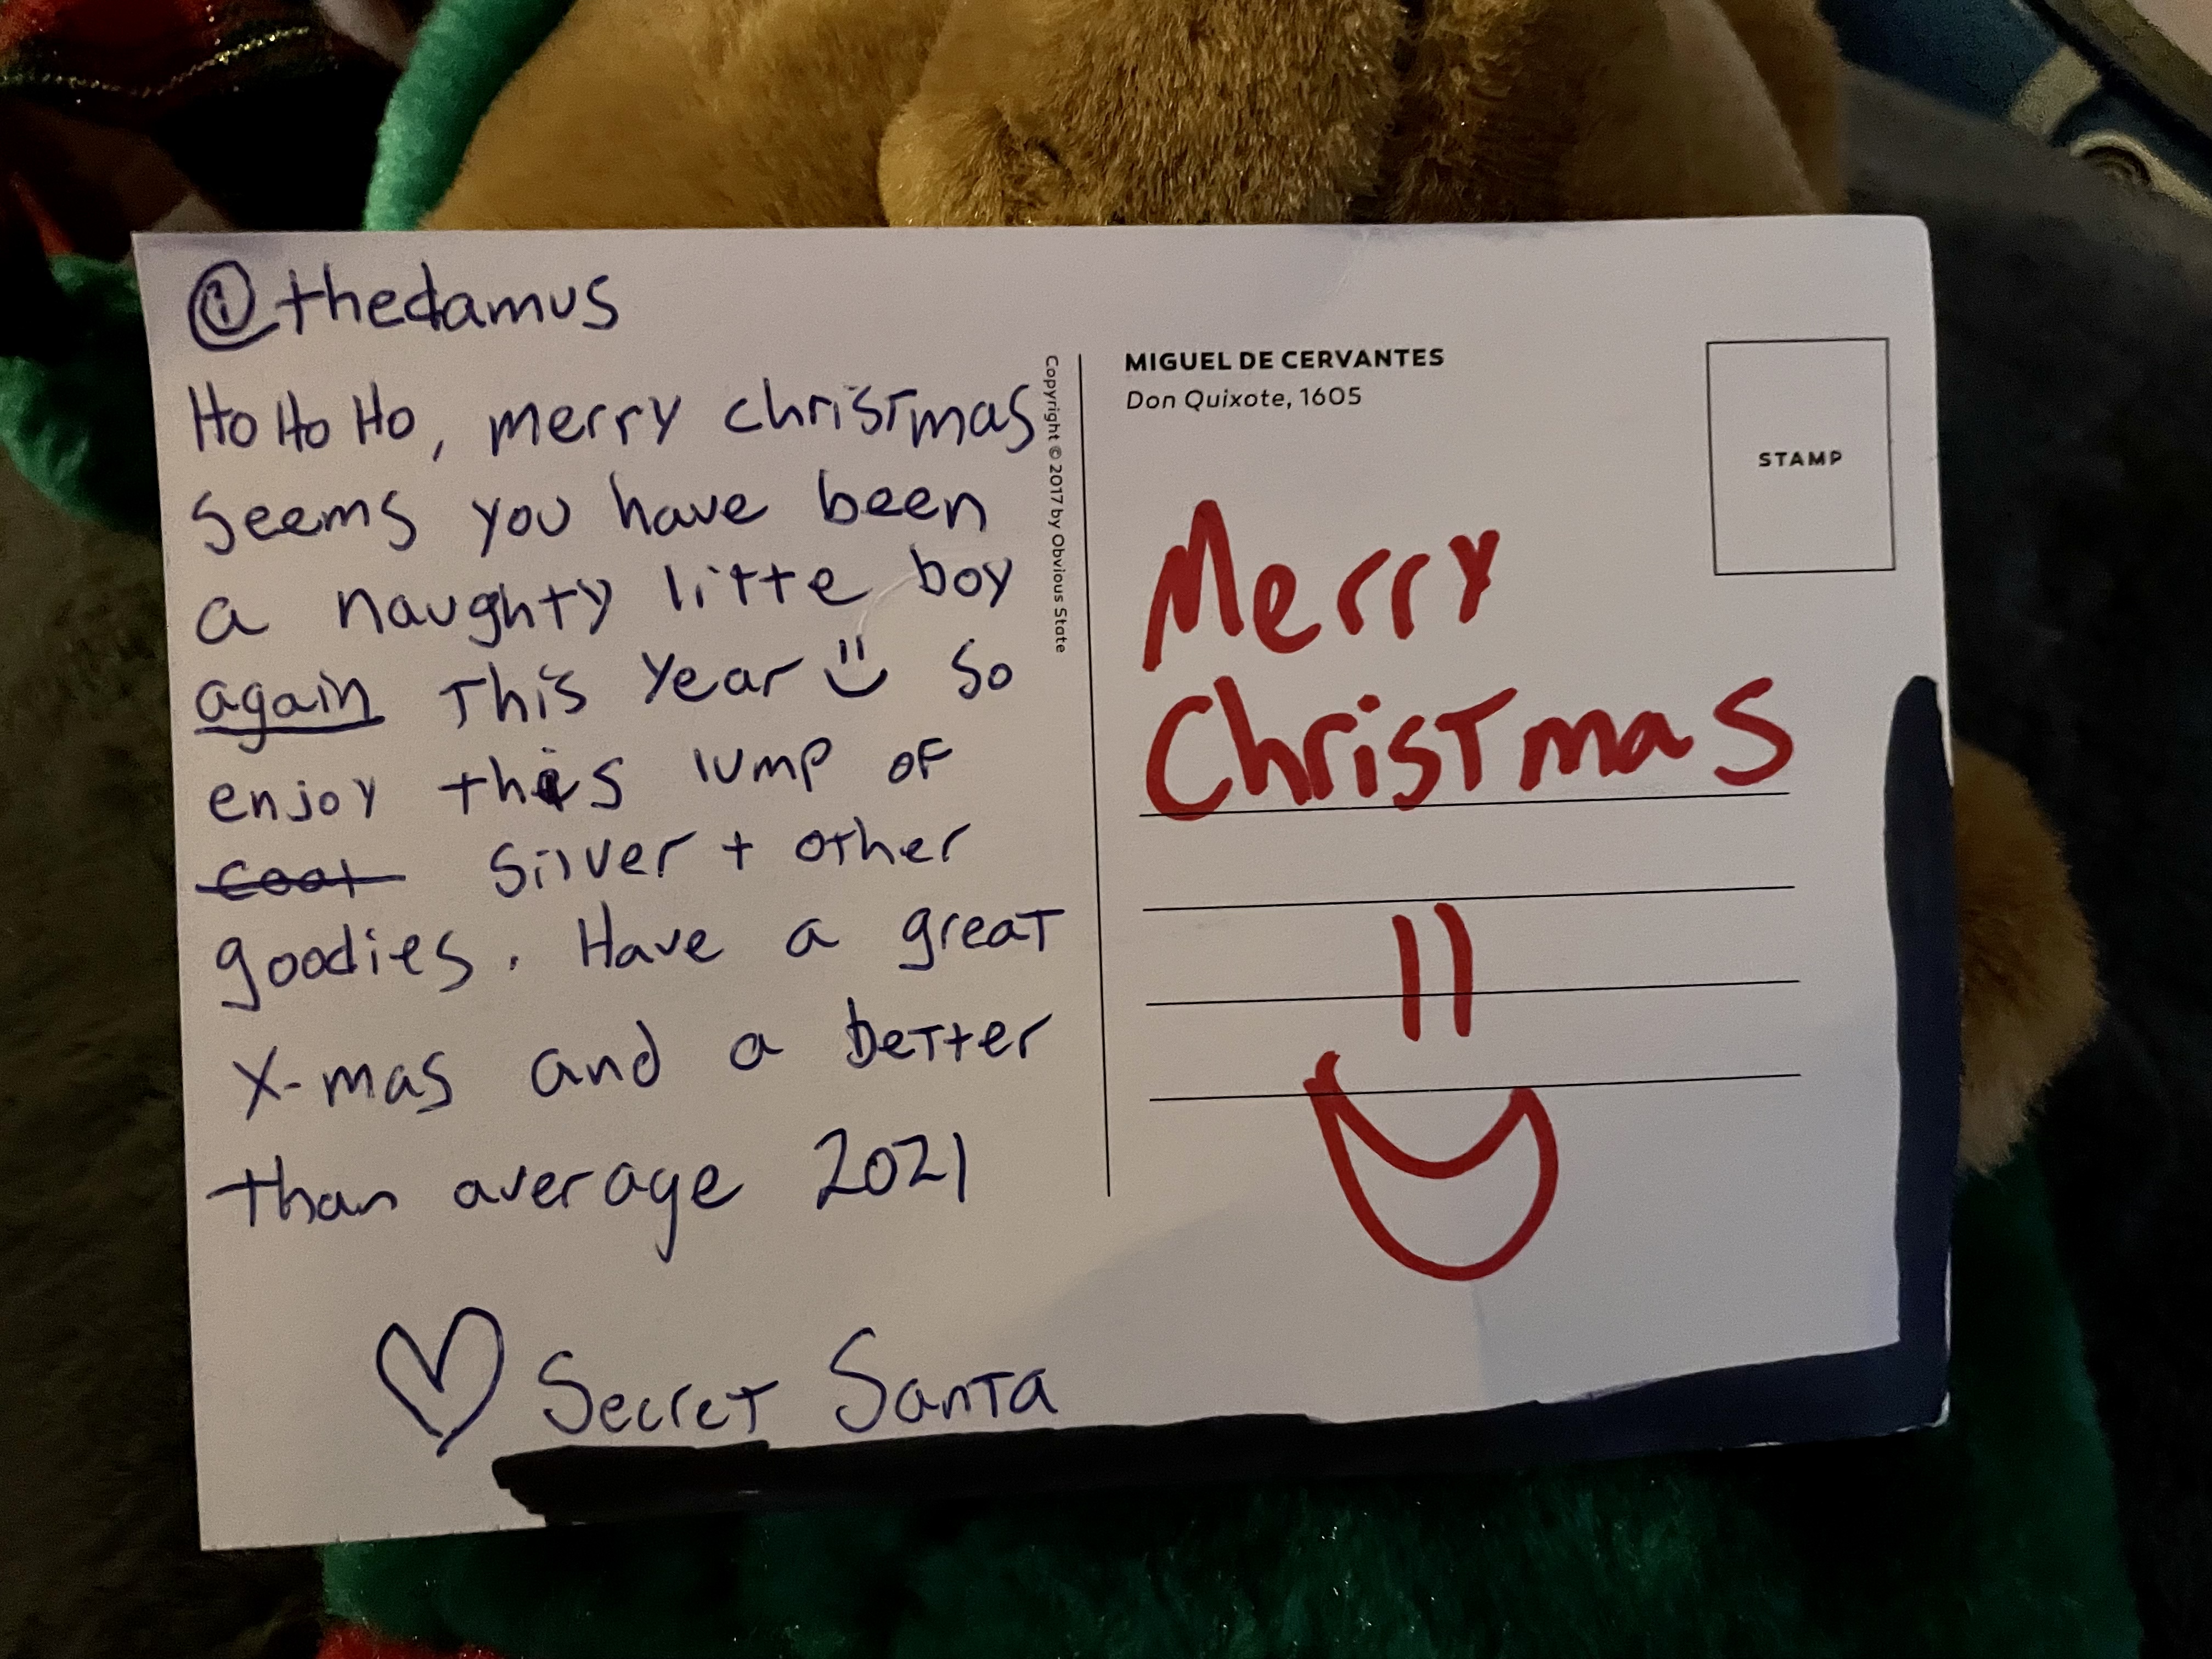 @thedamus
Ho Ho Ho, merry christmas
seems you have been
a naughty litte boy
again this year :) So
enjoy this lump of
coal silver + other
goodies. Have a great
X-mas and a better
than average 2021
♡ Secret Santa
Copyright © 2017 by Obvious State
MIGUEL DE CERVANTES
Don Quixote, 1605
STAMP
Merry
Christmas